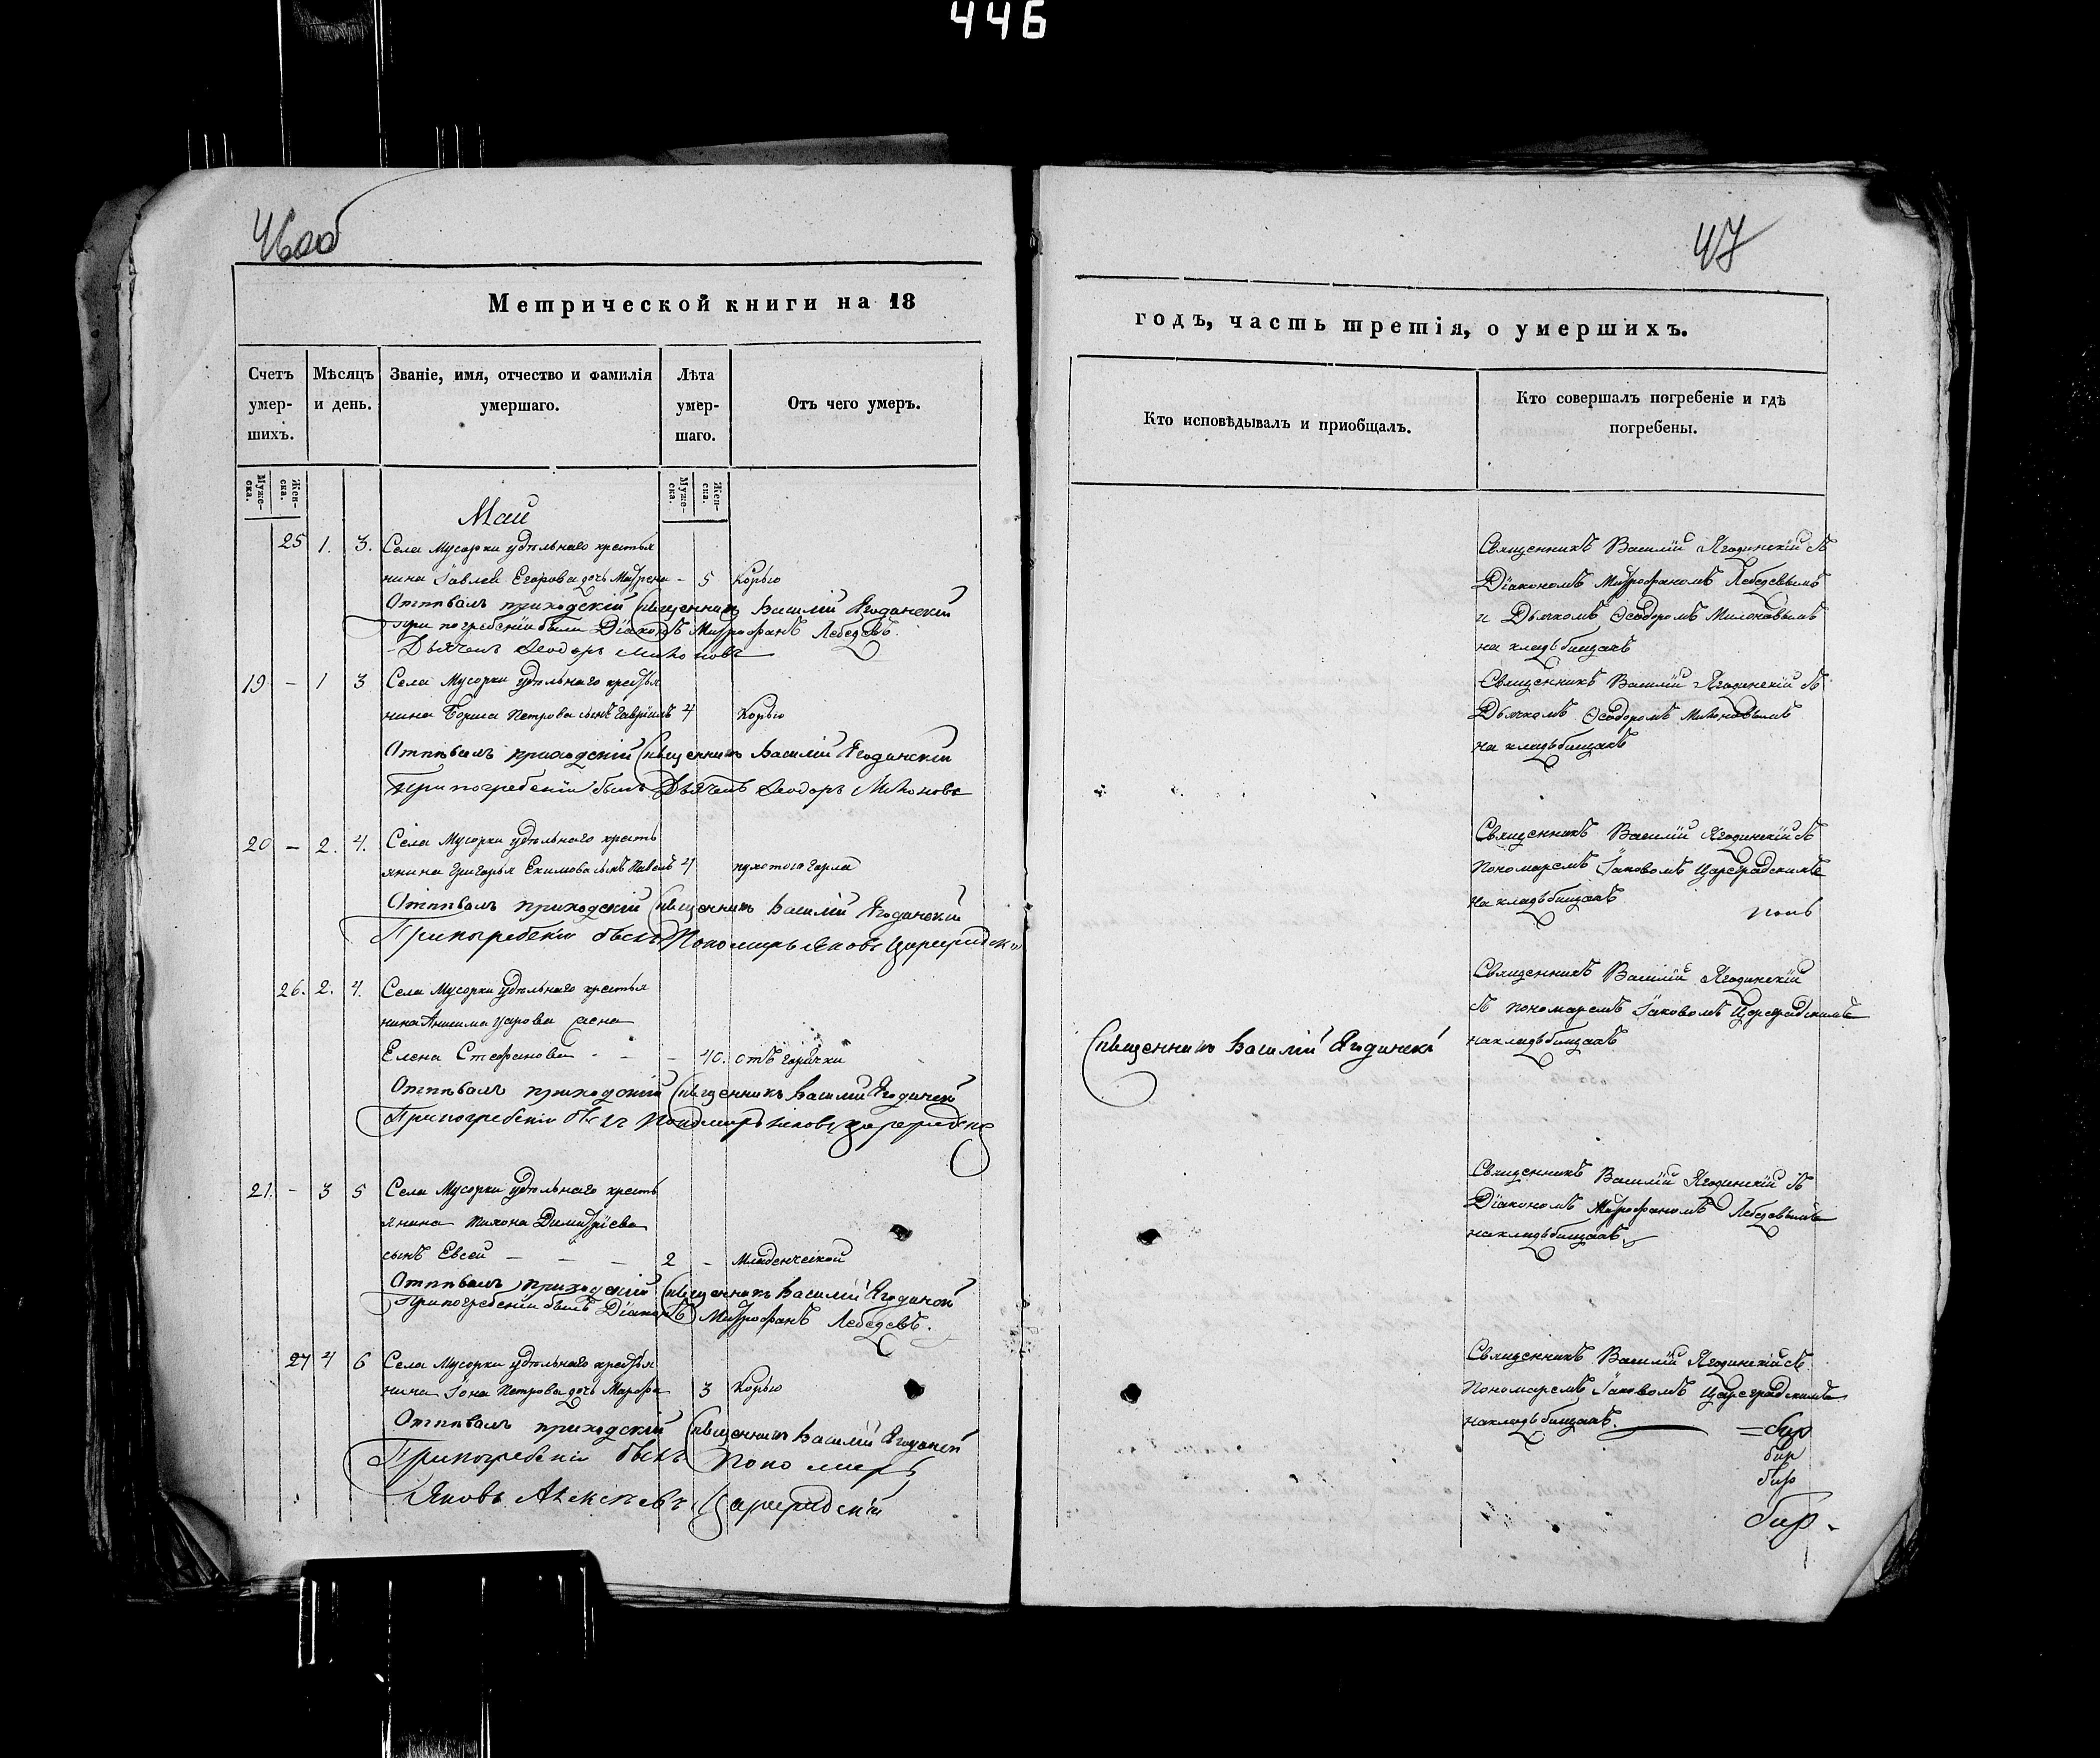 446
46 об
47
Метрической книги на 18
годъ, часть третія, о умершихъ.
Счетъ умер-шихъ.
Мѣсяцъ и день.
Званіе, имя, отчество и фамилія умершаго.
Лѣта умер-шаго.
Отъ чего умеръ.
Кто исповѣдывалъ и приобщалъ.
Кто совершалъ погребеніе и гдѣ погребены.
Муже-ска.
Жен-ска.
Муже-ска.
Жен-ска.
Май
25 1. 3. Села Мусорки удѣльнаго крестья
нина Павла Егорова дочь Маѳрена - 5 Корью
Отпѣвалъ приходскій Священникъ Василій Ягодинскій
При погребеніи были Діаконъ Митрофанъ Лебедевъ.
Дьячекъ Ѳеодоръ Милоновъ
Священникъ Василій Ягодинскій съ
Діакономъ Митрофаномъ Лебедевымъ
и Дьячкомъ Ѳеодоромъ Милоновымъ
на кладьбищахъ
19 - 1 3 Села Мусорки удѣльнаго крестья
нина Бориса Петрова сынъ Гавріилъ 4 Корью
Отпѣвалъ приходскій Священникъ Василій Ягодинскій
При погребеніи былъ Дьячекъ Ѳеодоръ Милоновъ
Священникъ Василій Ягодинскій съ
Дьячкомъ Ѳеодоромъ Милоновымъ
на кладьбищахъ
20 - 2. 4. Села Мусорки удѣльнаго кресть
янина Григорья Екимова сынъ Павелъ 4 горла
Отпѣвалъ приходскій Священникъ Василій Ягодинскій
При погребеніи былъ Пономарь Яковъ Цареградскій
Священникъ Василій Ягодинскій съ
Пономаремъ Іаковомъ Цареградскимъ
на кладьбищахъ
26. 2. 4. Села Мусорки удѣльнаго крестья
нина Анисима жена
Елена Стефанова - - - 40. отъ горячки
Отпѣвалъ приходскій Священникъ Василій Ягодинскій
При погребеніи былъ Пономарь Яковъ Цареградскій
Священникъ Василій Ягодинскій
Священникъ Василій Ягодинскій
съ пономаремъ Іаковомъ Цареградскимъ
на кладьбищахъ
21. - 3 5 Села Мусорки удѣльнаго кресть
янина Тихона Димитріева
сынъ Евсей - - - 2 - Младенческой
Отпѣвалъ приходскій Священникъ Василій Ягодинскій
При погребеніи былъ Діаконъ Митрофанъ Лебедевъ.
Священникъ Василій Ягодинскій съ
Діакономъ Митрофаномъ Лебедевымъ
на кладьбищахъ
27 4 6 Села Мусорки удѣльнаго крестья
нина Іона Петрова дочь Марфа 3 Корью
Отпѣвалъ приходскій Священникъ Василій Ягодинскій
При погребеніи былъ Пономарь
Яковъ Алексѣевъ Цареградскій
Священникъ Василій Ягодинскій съ
Пономаремъ Іаковомъ Цареградскимъ
на кладьбищахъ.